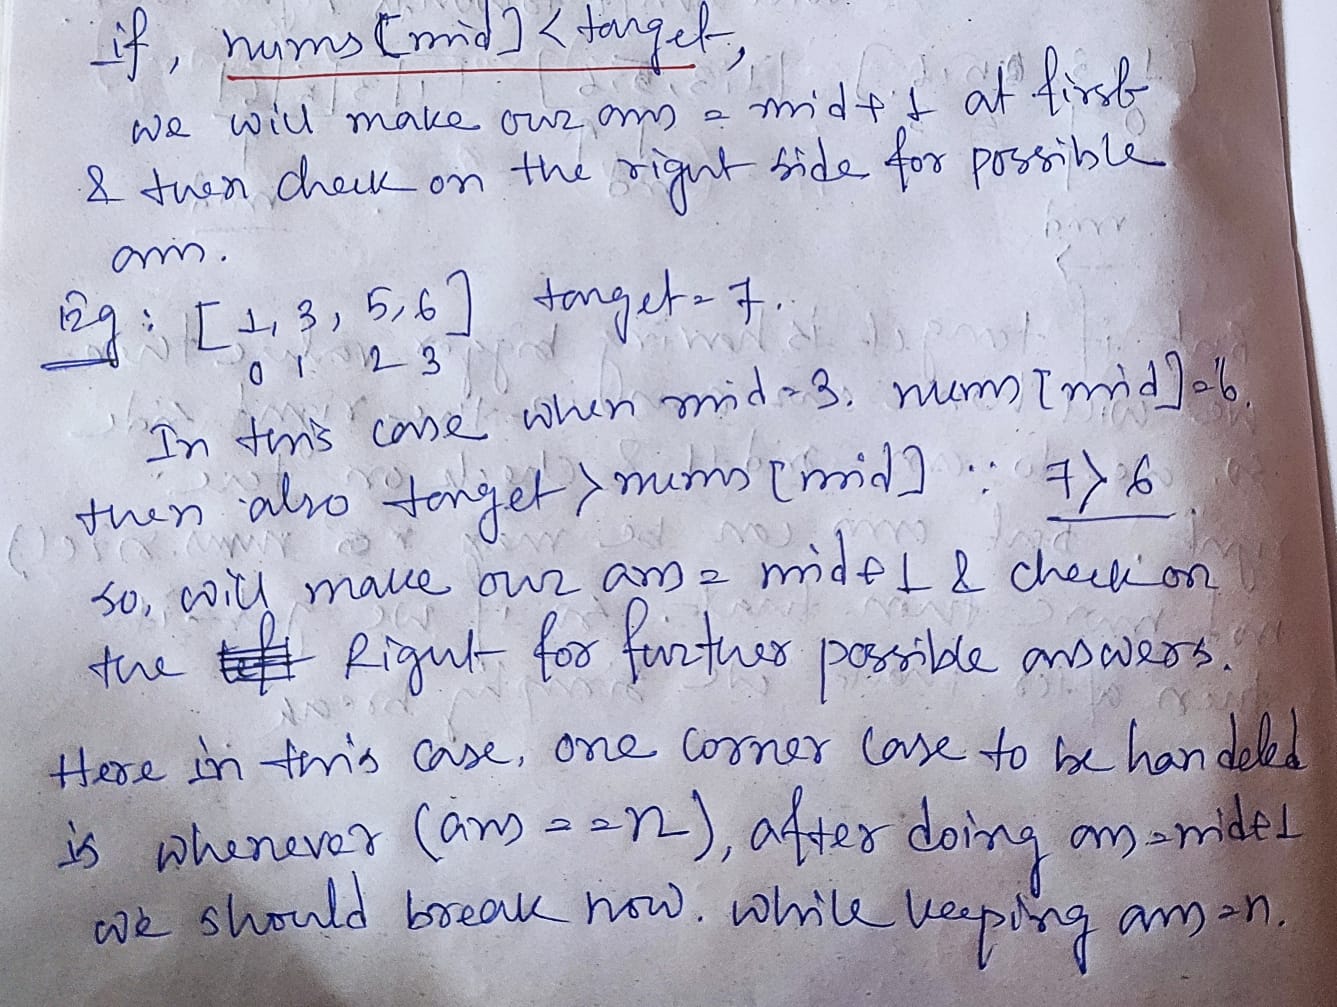 if, nums[mid] < target,
we will make our ans = mid+1 at first
& then check on the right side for possible
ans.
Eg: [1, 3, 5, 6] target = 7.
0 1 2 3
In this case when mid = 3. nums[mid] = 6.
then also target > nums[mid] ∵ 7 > 6
so, will make our ans = mid+1 & check on
the Right for further possible answers.
Here in this case, one corner case to be handeled
is whenever (ans == n), after doing ans = mid+1
we should break now. while keeping ans = n.